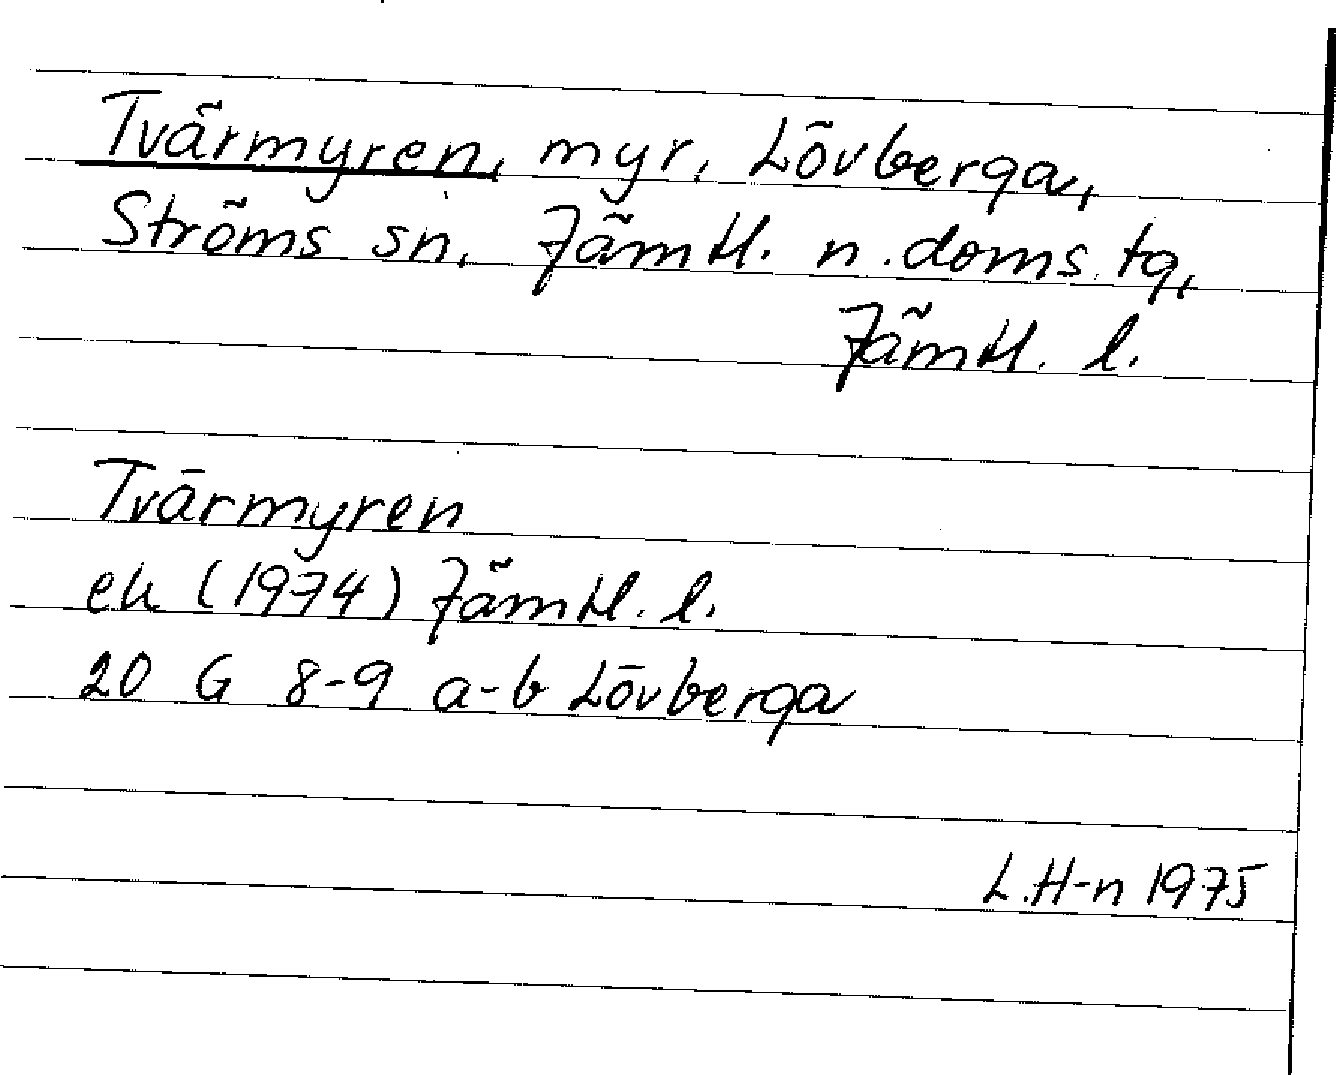 Tvärmyren, myr, Lövberga,
Ströms sn, Jämtl. n. doms. tg,
Jämtl. l.
Tvärmyren
ek (1974) Jämtl. l.
20 G 8-9 a-b Lövberga
L.H-n 1975